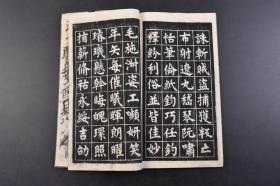 誅斬賊盜捕獲叛亡
布射遼丸嵇琴阮嘯
恬筆倫紙鈞巧任釣
釋紛利俗並皆佳妙
毛施淑姿工嚬妍笑
年矢每催曦暉朗曜
璇璣懸斡晦魄環照
指薪修祜永綏吉劭